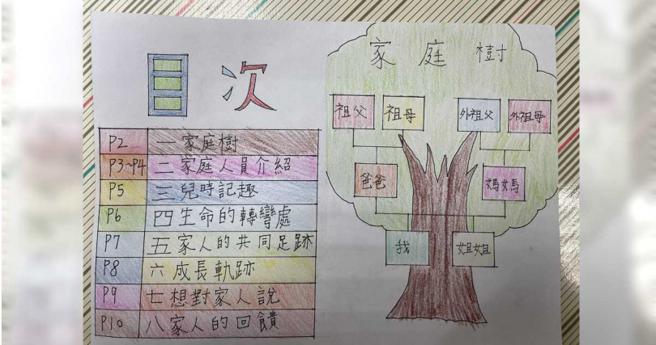 目次
P2 一 家庭樹
P3~P4 二 家庭人員介紹
P5 三 兒時記趣
P6 四 生命的轉彎處
P7 五 家人的共同足跡
P8 六 成長軌跡
P9 七 想對家人說
P10 八 家人的回饋
家庭樹
祖父 祖母 外祖父 外祖母
爸爸 媽媽
我 姐姐